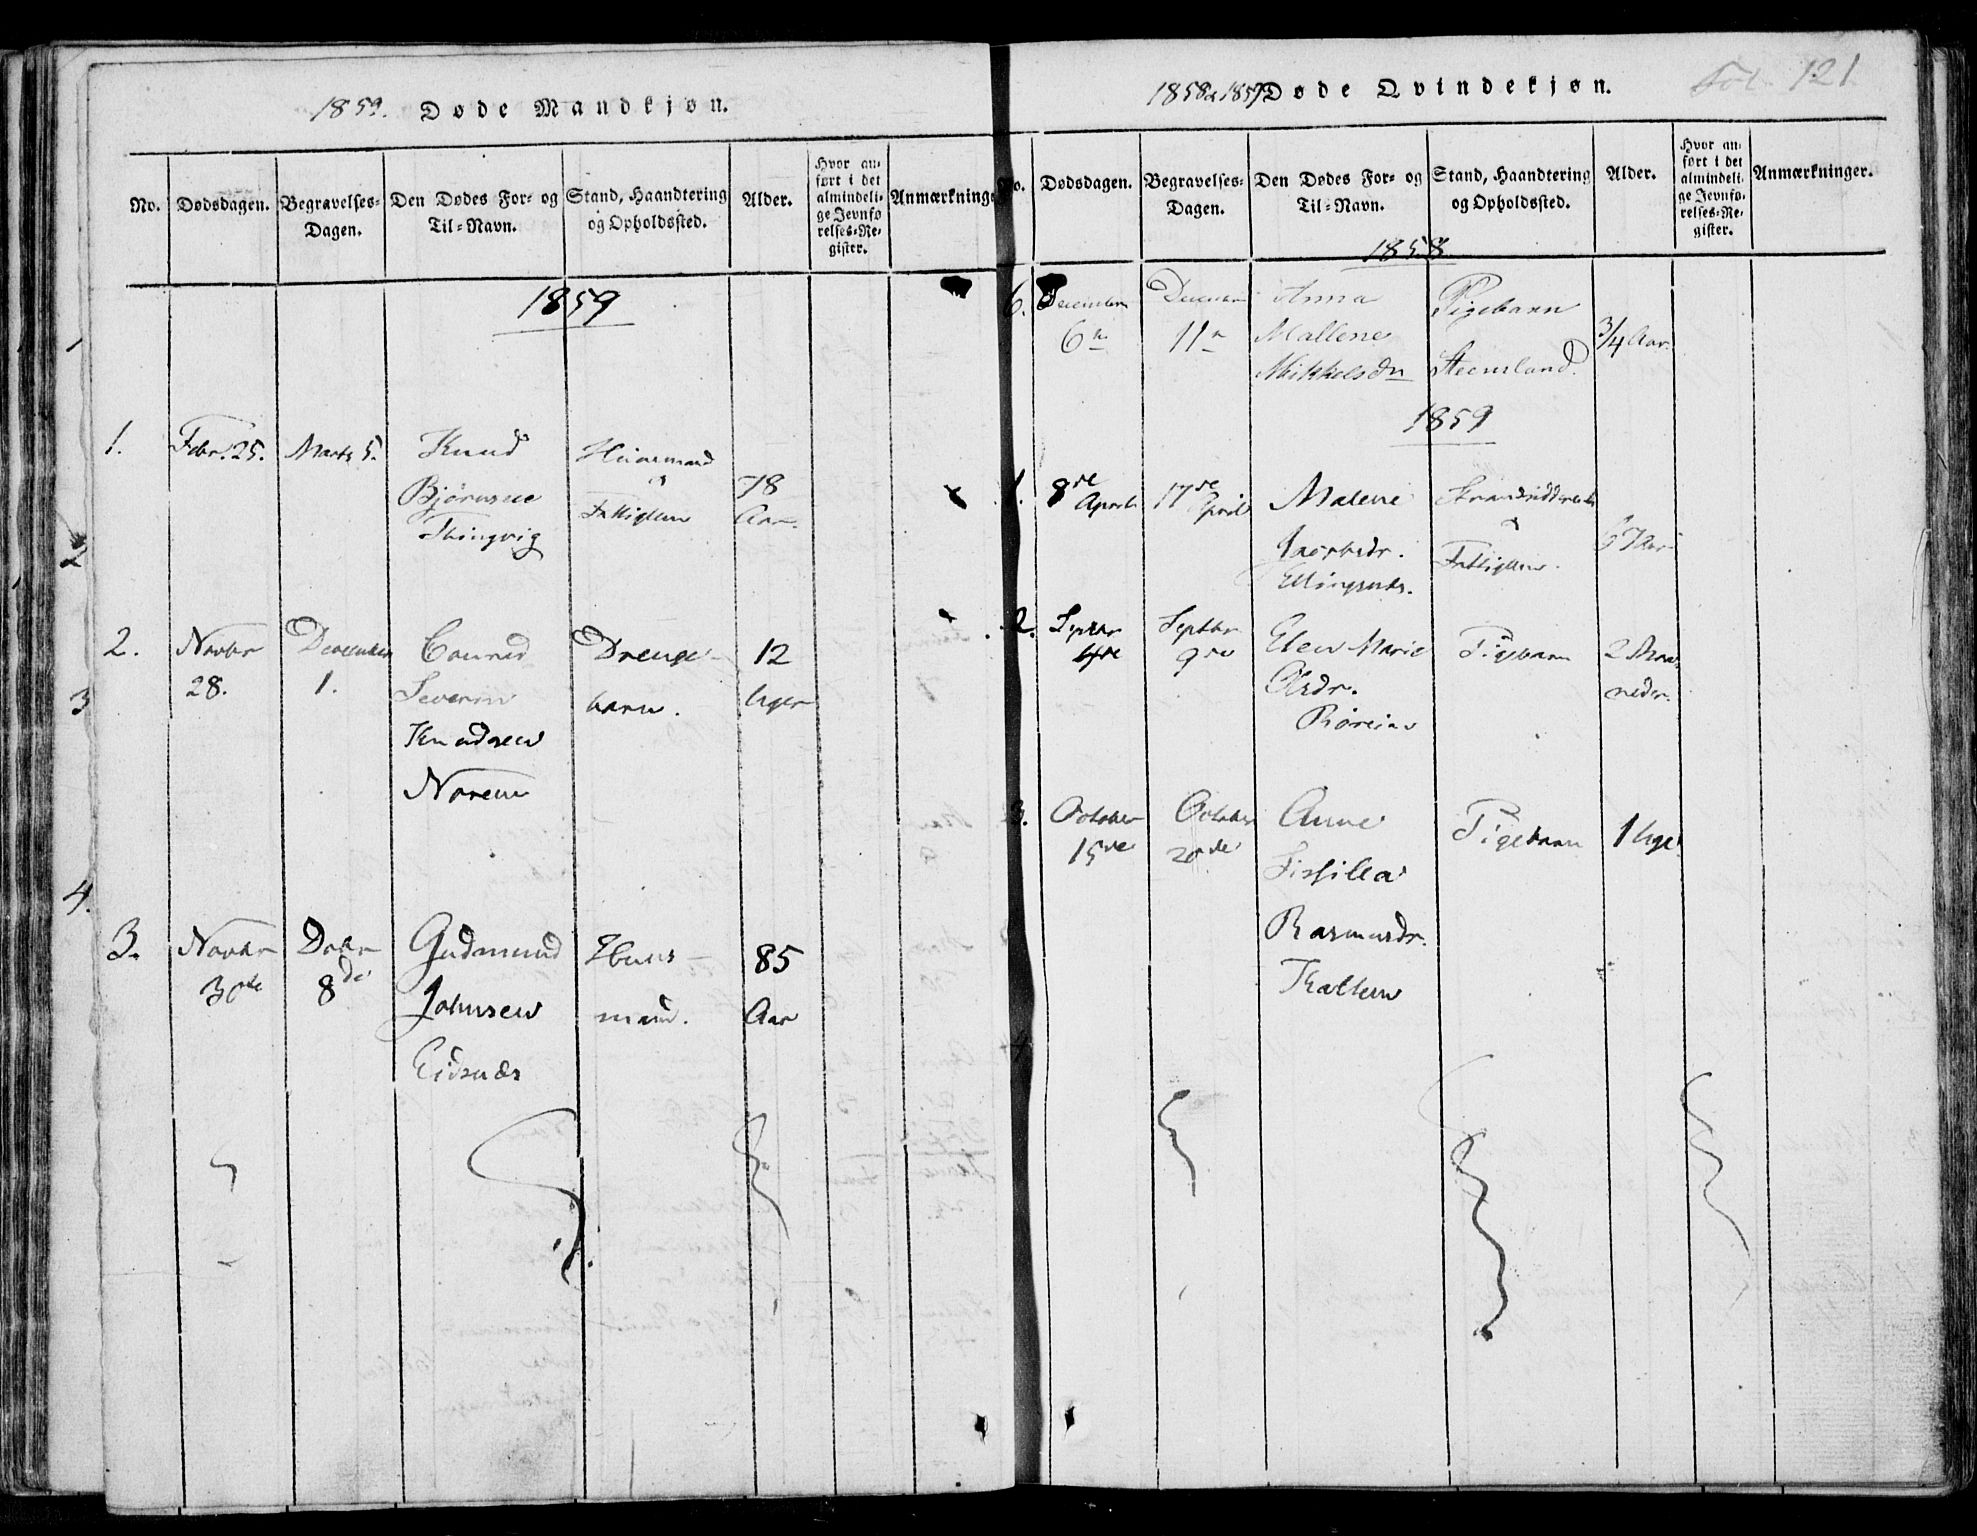 1859. Døde Mandkjøn.
No.
Dødsdagen.
Begravelses-
Dagen.
Den Dødes For- og
Til-Navn.
Stand, Haandtering
og Opholdssted.
Alder.
Hvor an-
ført i det
almindeli-
ge Jevnfø
relses-Re-
gister.
Anmærkninge
1859
1.
Febr. 25.
Marts 5.
Knud
Bjørnsen
Thingvig
Huusmand
78
Aar.
2.
Novbr
28.
December
1.
Conrad
Severin
Knudsen
Norem
Drenge-
barn.
12
Uger
3.
Novbr
30te
Dcbr
8de
Gudmund
Johnsen
Eidsnæs
Huus-
mand.
85
Aar
1
2
3
4.
1858 & 1859 Døde Qvindekjøn.
Fol. 121
No.
Dødsdagen.
Begravelses-
Dagen.
Den Dødes For- og
Til-Navn.
Stand, Haandtering
og Opholdssted.
Alder.
Hvor an-
ført i det
almindeli-
ge Jevnfø-
relses-Re-
gister.
Anmærkninger.
1858
6.
December
6te
December
11te
Anna
Mallene
Mikkelsdr
Pigebarn
Steensland.
3/4 Aar.
1859
1.
8de
April
17de
April
Malene
Jacobsdr.
67 Aar
2.
Septbr
4de
Septbr
9de
Elen Marie
Olsdr.
Pigebarn
2 Maa-
neder.
3.
October
15de
October
20de
Anne
Sissilla
Rasmusdr.
Pigebarn
1 Uge
4